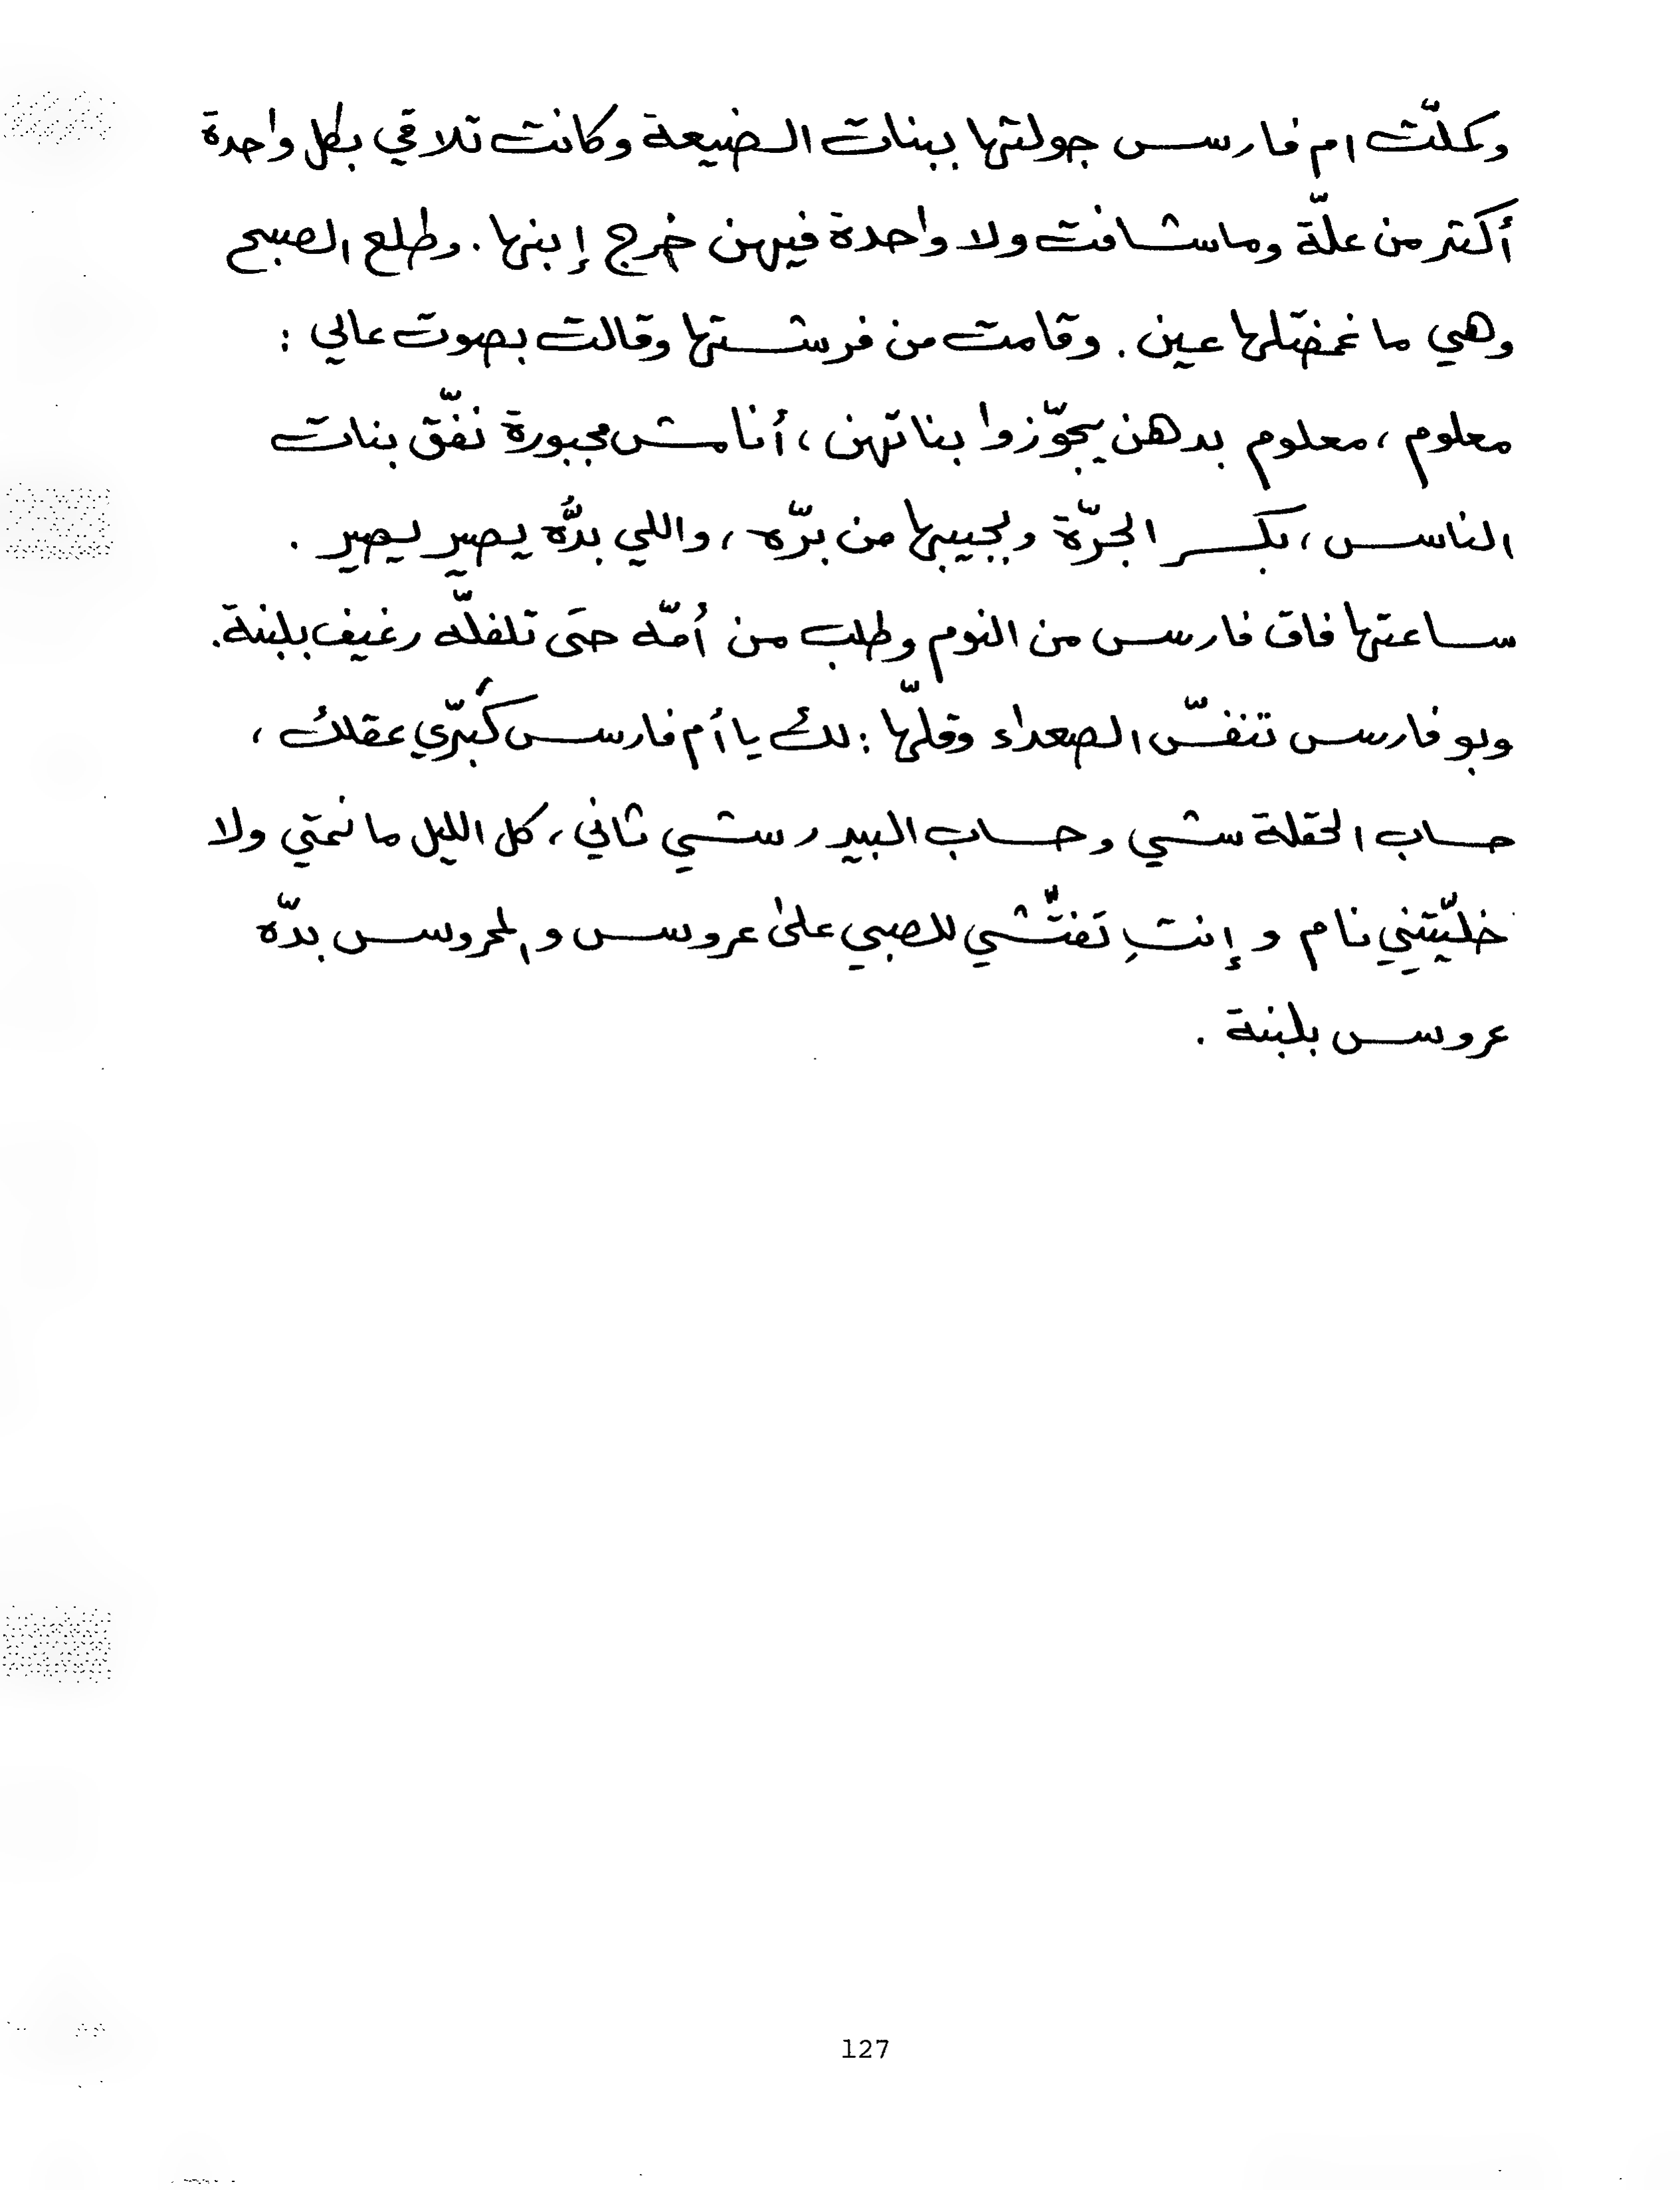 وكملّت ام فارس جولتها ببنات الضيعة وكانت تلاقي بكل واحدة
أكتر من علّة وما شافت ولا واحدة فيهن خرج إبنها. وطلع الصبح
وهي ما غمضتلها عين. وقامت من فرشتها وقالت بصوت عالي :
معلوم، معلوم بدهن يجوّزوا بناتهن، أنا مش مجبورة نفّق بنات
الناس، بكسر الجرّة وبجيبها من برّه، واللي بدُّه يصير يصير .
ساعتها فاق فارس من النوم وطلب من أمّه حتى تلفلّه رغيف بلبنة.
وبو فارس تنفّس الصعداء وقلّها : لك يا أم فارس كَبّري عقلك ،
حساب الحقلة شي وحساب البيدر شي تاني، كل الليل ما نمتي ولا
خليّتيني نام وإنتِ تفتّشي للصبي على عروس والمحروس بدّه
عروس بلبنة .
127